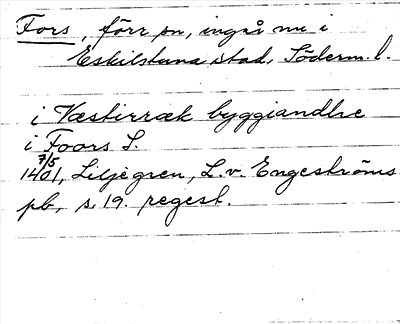 Fors, förr sn, ingår nu i
Eskilstuna stad, Söderm. l.
i Væstirræk byggiandhe
i Foors S.
7/5
1401, Liljegren, L. v. Engeströms
pb, s. 19. regest.